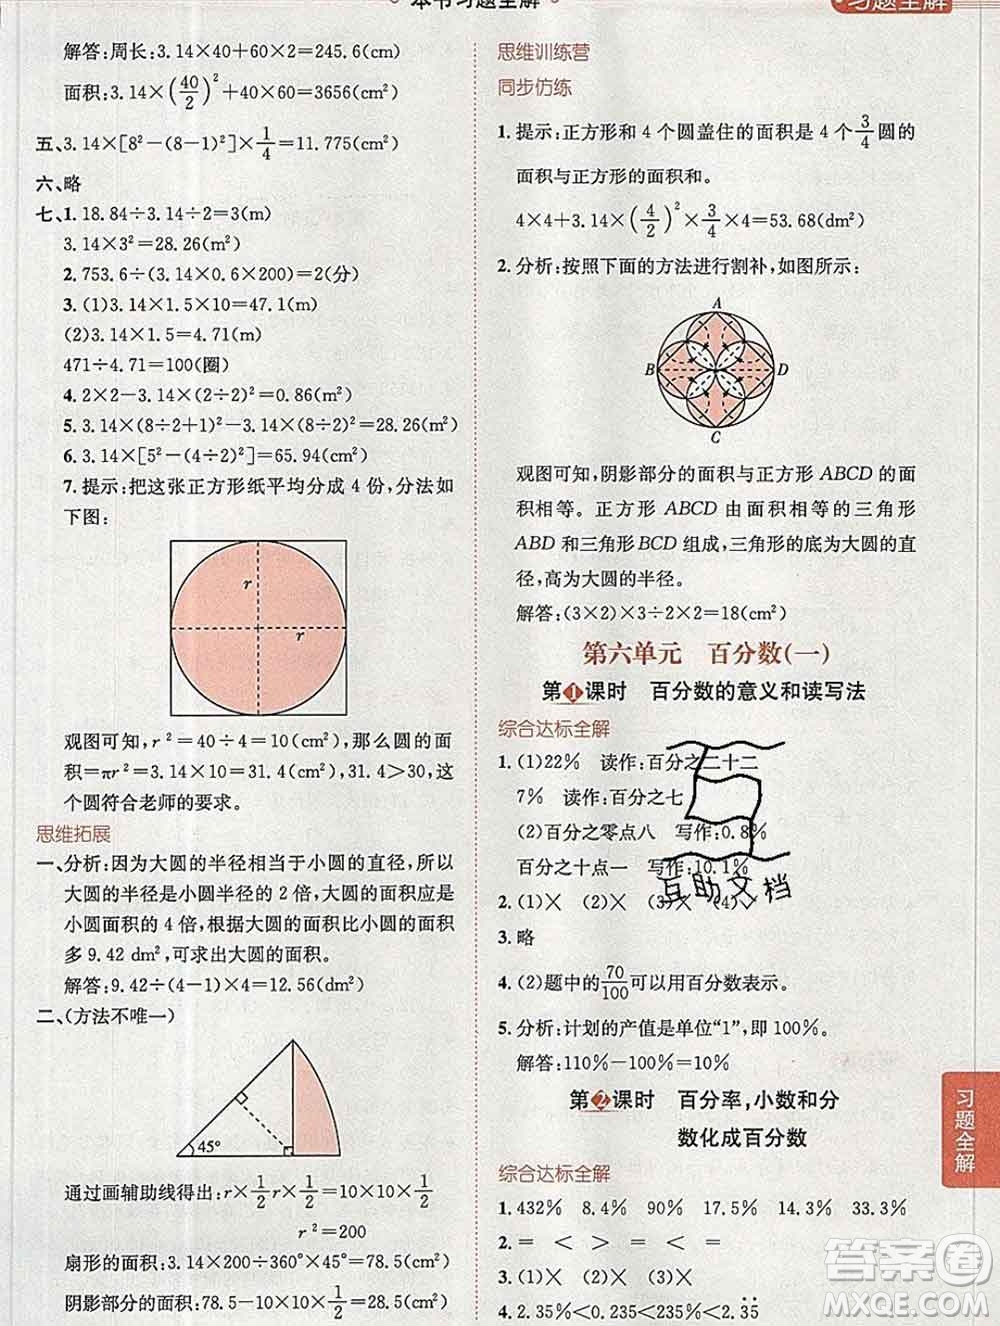 本书习题全解
习题全解
解答:周长:3.14×40+60×2=245.6(cm)
面积:3.14×(40/2)²+40×60=3656(cm²)
五、3.14×[8²-(8-1)²]×1/4=11.775(cm²)
六、略
七、1. 18.84÷3.14÷2=3(m)
3.14×3²=28.26(m²)
2. 753.6÷(3.14×0.6×200)=2(分)
3. (1)3.14×1.5×10=47.1(m)
(2)3.14×1.5=4.71(m)
471÷4.71=100(圈)
4. 2×2-3.14×(2÷2)²=0.86(m²)
5. 3.14×(8÷2+1)²-3.14×(8÷2)²=28.26(m²)
6. 3.14×[5²-(4÷2)²]=65.94(cm²)
7. 提示:把这张正方形纸平均分成4份,分法如
下图:
r
r
观图可知,r²=40÷4=10(cm²),那么圆的面
积=πr²=3.14×10=31.4(cm²),31.4>30,这
这个圆符合老师的要求。
思维拓展
一、分析:因为大圆的半径相当于小圆的直径,所以
大圆的半径是小圆半径的2倍,大圆的面积应是
小圆面积的4倍,根据大圆的面积比小圆的面积
多9.42 dm²,可求出大圆的面积。
解答:9.42÷(4-1)×4=12.56(cm²)
二、(方法不唯一)
45°
通过画辅助线得出:r×1/2r×1/2=10×10×1/2
r²=200
扇形的面积:3.14×200÷360°×45°=78.5(cm²)
阴影部分的面积:78.5-10×10×1/2=28.5(cm²)
思维训练营
同步仿练
1. 提示:正方形和4个圆盖住的面积是4个3/4圆的
面积与正方形的面积和。
4×4+3.14×(4/2)²×3/4×4=53.68(dm²)
2. 分析:按照下面的方法进行割补,如图所示:
A
B
D
C
观图可知,阴影部分的面积与正方形ABCD的面
积相等。正方形ABCD由面积相等的三角形
ABD和三角形BCD组成,三角形的底为大圆的直
径,高为大圆的半径。
解答:(3×2)×3÷2×2=18(cm²)
第六单元 百分数(一)
第1课时 百分数的意义和读写法
综合达标全解
1. (1)22% 读作:百分之二十二
7% 读作:百分之七
(2)百分之零点八 写作:0.8%
百分之十点一 写作:10.1%
互助文档
2. (1)× (2)× (3)× (4)√
3. 略
4. (2)题中的70/100可以用百分数表示。
5. 分析:计划的产值是单位“1”,即100%。
解答:110%-100%=10%
第2课时 百分率,小数和分
数化成百分数
综合达标全解
1. 432% 8.4% 90% 17.5% 14.3% 33.3%
2. = < > < > =
3. (1)
4. 2.35%<0.235<235%<2.3̇5̇
习题全解
答案圈
MXQE.COM